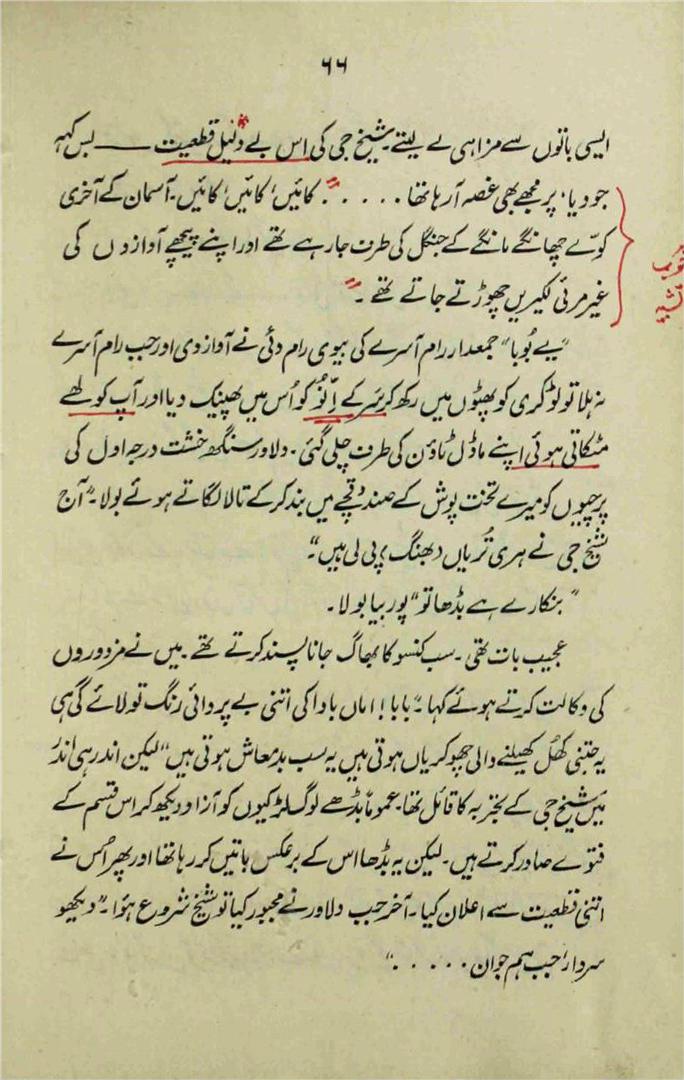 ۶۶
ایسی باتوں سے مزا ہی لے لیتے شیخ جی کی اس بے دلیل قطعیت —— بس کہہ
جو دیا، پر مجھے بھی غصہ آ رہا تھا ..... کائیں، کائیں، کائیں۔ آسمان کے آخری
کوّے چھانگے مانگے کے جنگل کی طرف جا رہے تھے اور اپنے پیچھے آوازوں کی
غیر مرئی لکیریں چھوڑتے جاتے تھے۔
خوب
تشبیہ
”یے بُوبا“ جمعدار رام آسرے کی بیوی رام دئی نے آواز دی اور جب رام آسرے
نہ ہلا تو لوکری کو پھٹوں میں رکھ کر سر کے اِنّو کو اُس میں پھینک دیا اور آپ کولھے
مٹکاتی ہوئی اپنے ماڈل ٹاؤن کی طرف چلی گئی۔ دلاور سنگھ خشت درجہ اول کی
پرچیوں کو میرے تخت پوش کے صندوقچے میں بند کر کے تالا لگاتے ہوئے بولا۔ ”آج
شیخ جی نے ہری تُریاں دی بھنگ پی لی ہیں“۔
”بنکارے ہے بڈھا تو“ پوربیا بولا۔
عجیب بات تھی۔ سب کنسو کا بھاگ جانا پسند کرتے تھے۔ میں نے مزدوروں
کی وکالت کرتے ہوئے کہا۔ ”بابا! اماں باوا کی اتنی بے پروائی رنگ تو لائے گی ہی
یہ جتنی کھُل کھیلنے والی چھوکریاں ہوتی ہیں یہ سب بدمعاش ہوتی ہیں“ لیکن اندر ہی اندر
میں شیخ جی کے تجزیہ کا قائل تھا۔ عموماً بڈھے لوگ لڑکیوں کو آزاد دیکھ کر اس قسم کے
فتوے صادر کرتے ہیں۔ لیکن یہ بڈھا اس کے برعکس باتیں کر رہا تھا اور پھر اُس نے
اتنی قطعیت سے اعلان کیا۔ آخر جب دلاور نے مجبور کیا تو شیخ شروع ہؤا۔ ”دیکھو
سردار، جب ہم جوان .....“